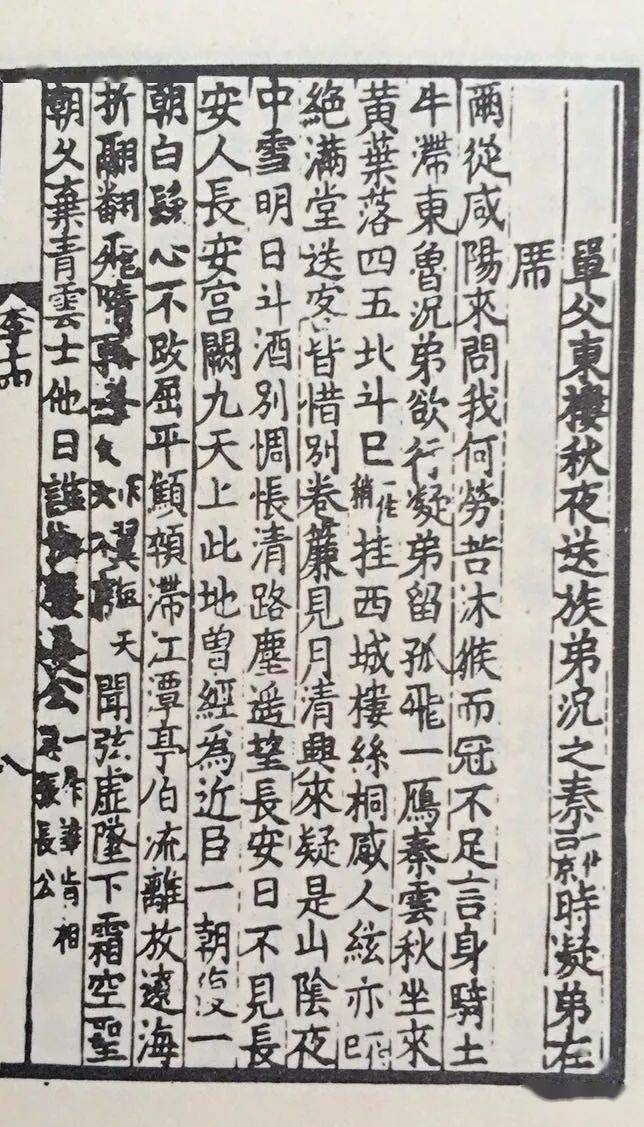 單父東樓秋夜送族弟況之秦一作西京時凝弟在
席
爾從咸陽來問我何勞苦沐猴而冠不足言身騎土
牛滯東魯況弟欲行凝弟留孤飛一鴈秦雲秋坐來
黃葉落四五北斗巳一作稍挂西城樓絲桐感人絃亦一作巳
絕滿堂送客皆惜別卷簾見月清興來疑是山陰夜
中雪明日斗酒別惆悵清路塵遥望長安日不見長
安人長安宮闕九天上此地曾經為近臣一朝復一
朝白髮心不改屈平顦顇滯江潭亭伯流離放遼海
折翮翻飛隨翼天聞弦虛墜下霜空聖
朝久棄青雲士他日誰憐張長公一作誰肯相張長公
李
八